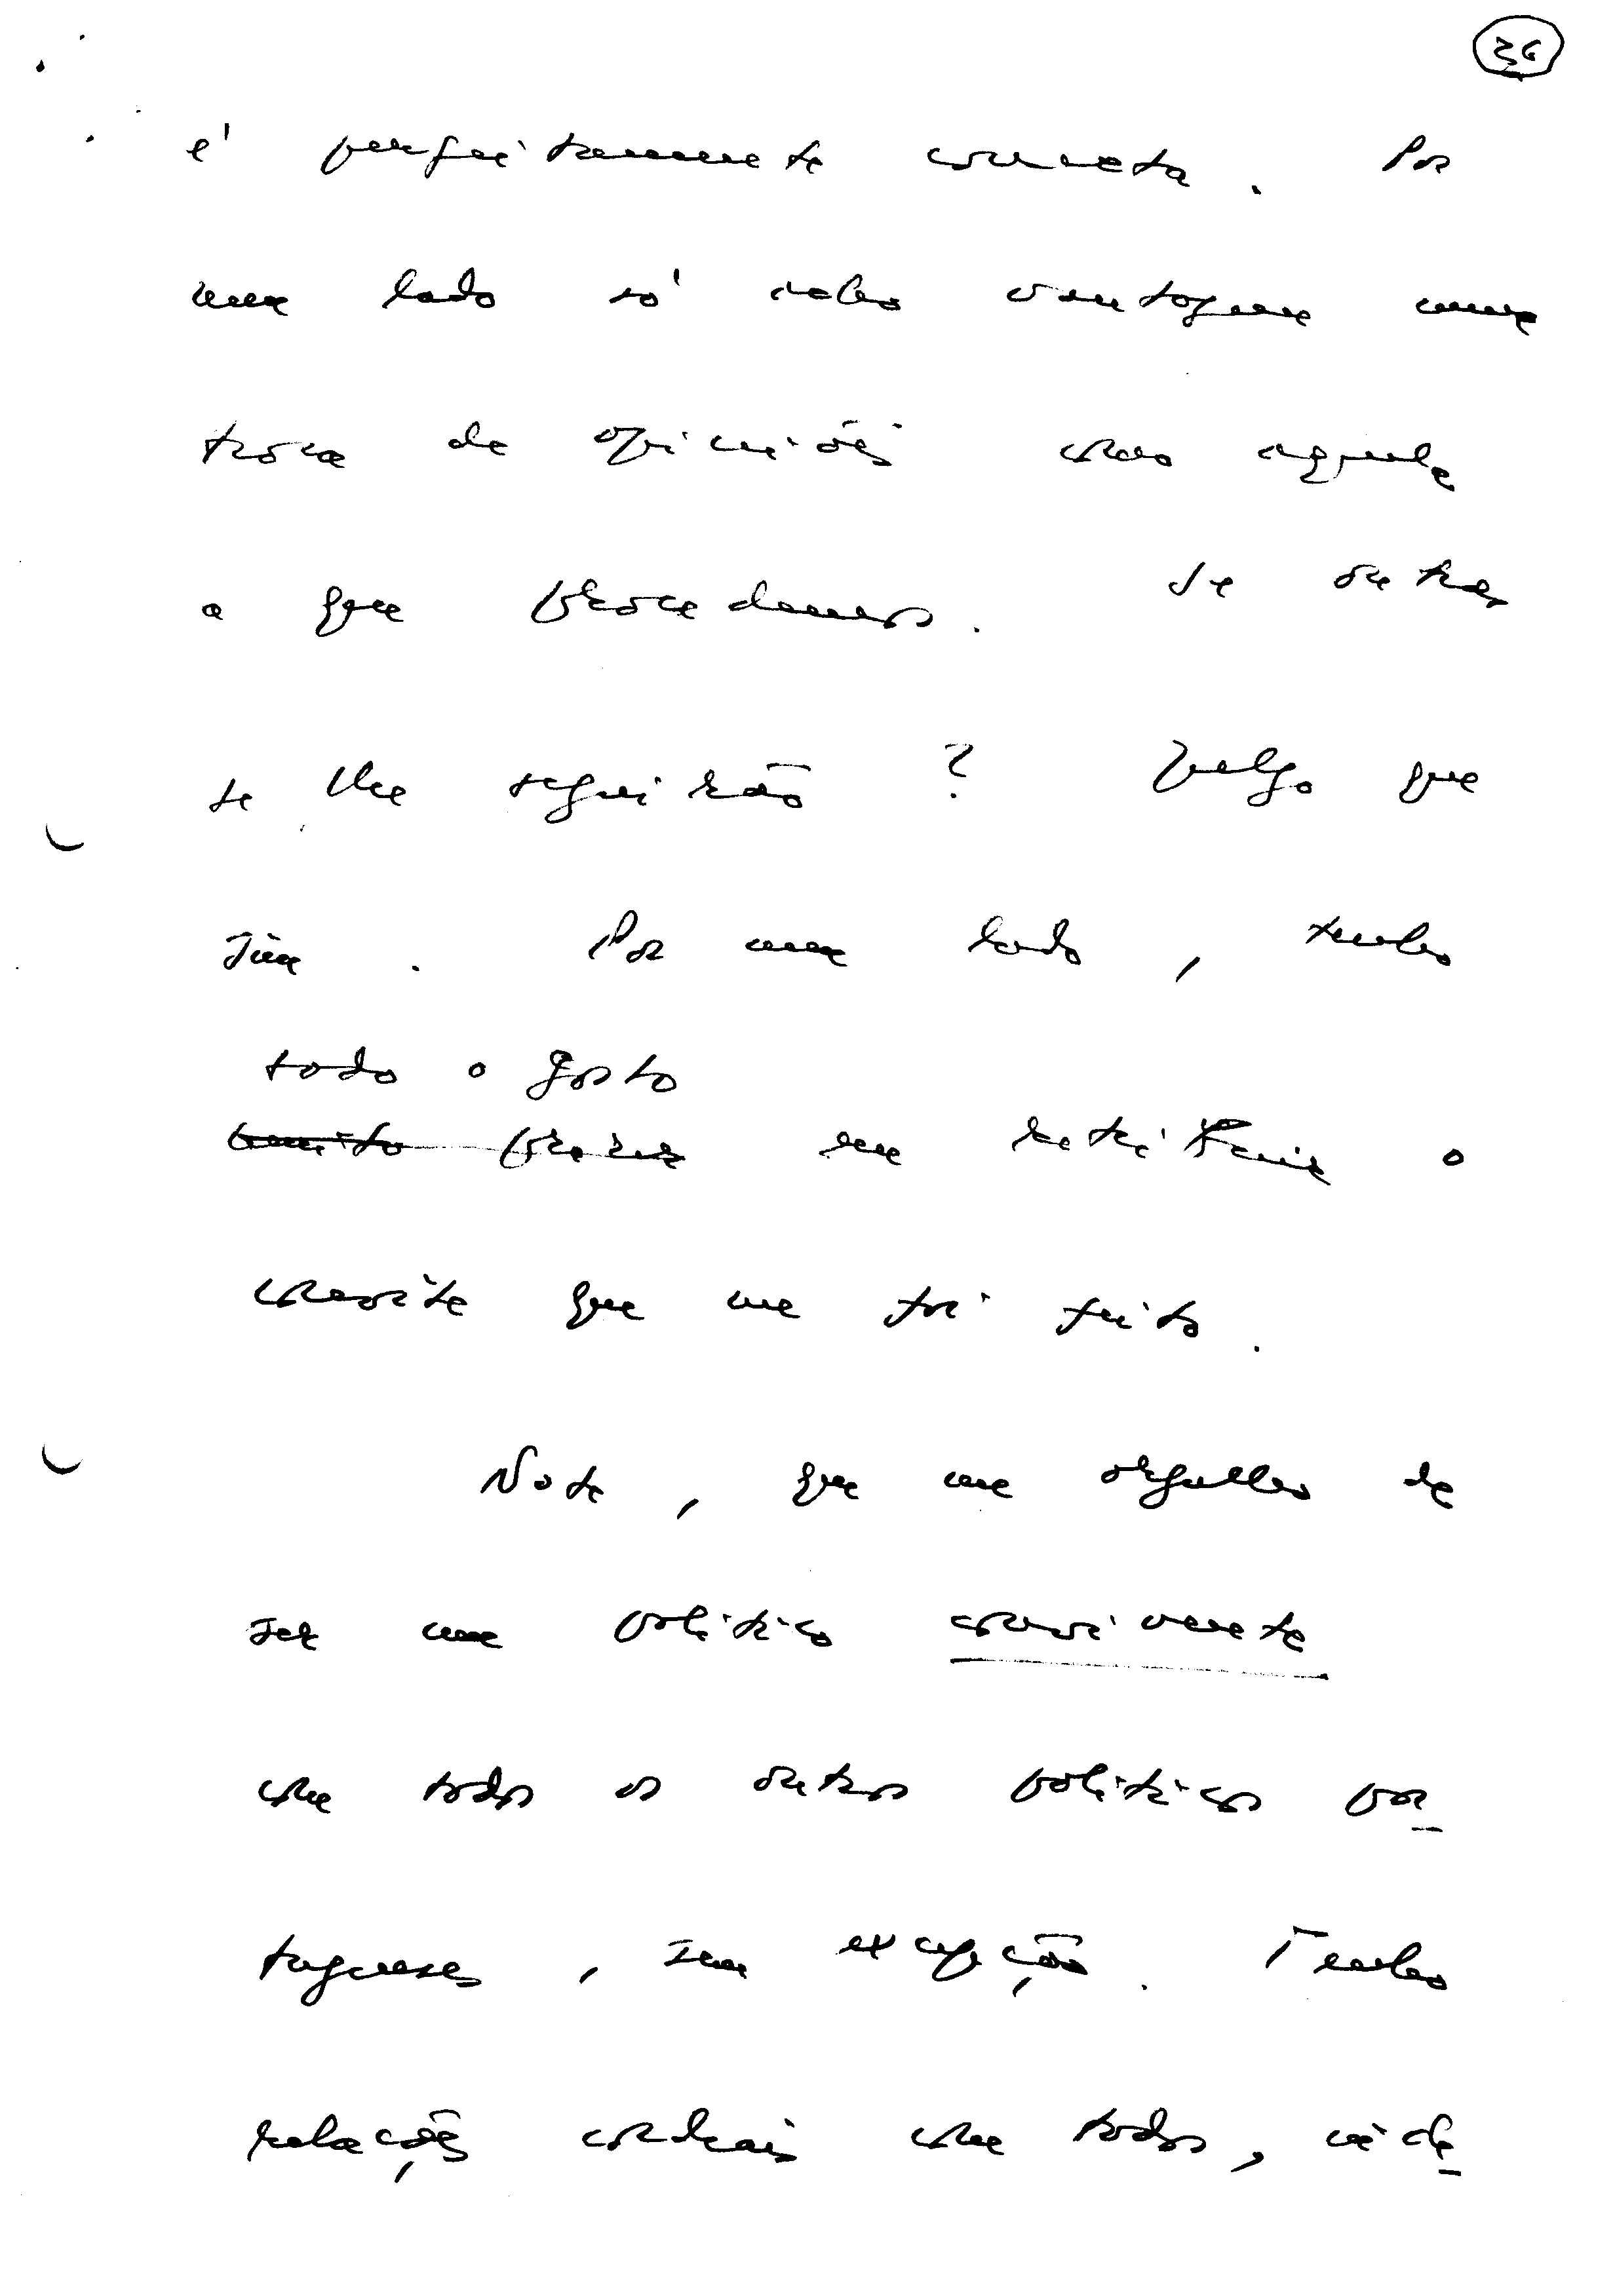 36
e' perfeitamente correcta. Por
um lado só acho vantagem numa
troca de opiniões como aquela
a que procedemos. Se outras
se lhe seguirão? Julgo que
sim. Por um lado, tenho
todo o gosto
muito prazer em retribuir o
convite que me foi feito.
Note, que me orgulho de
ser um político convivente
com todos os outros políticos por
tugueses, sem excepção. Tenho
relações cordiais com todos, vi de